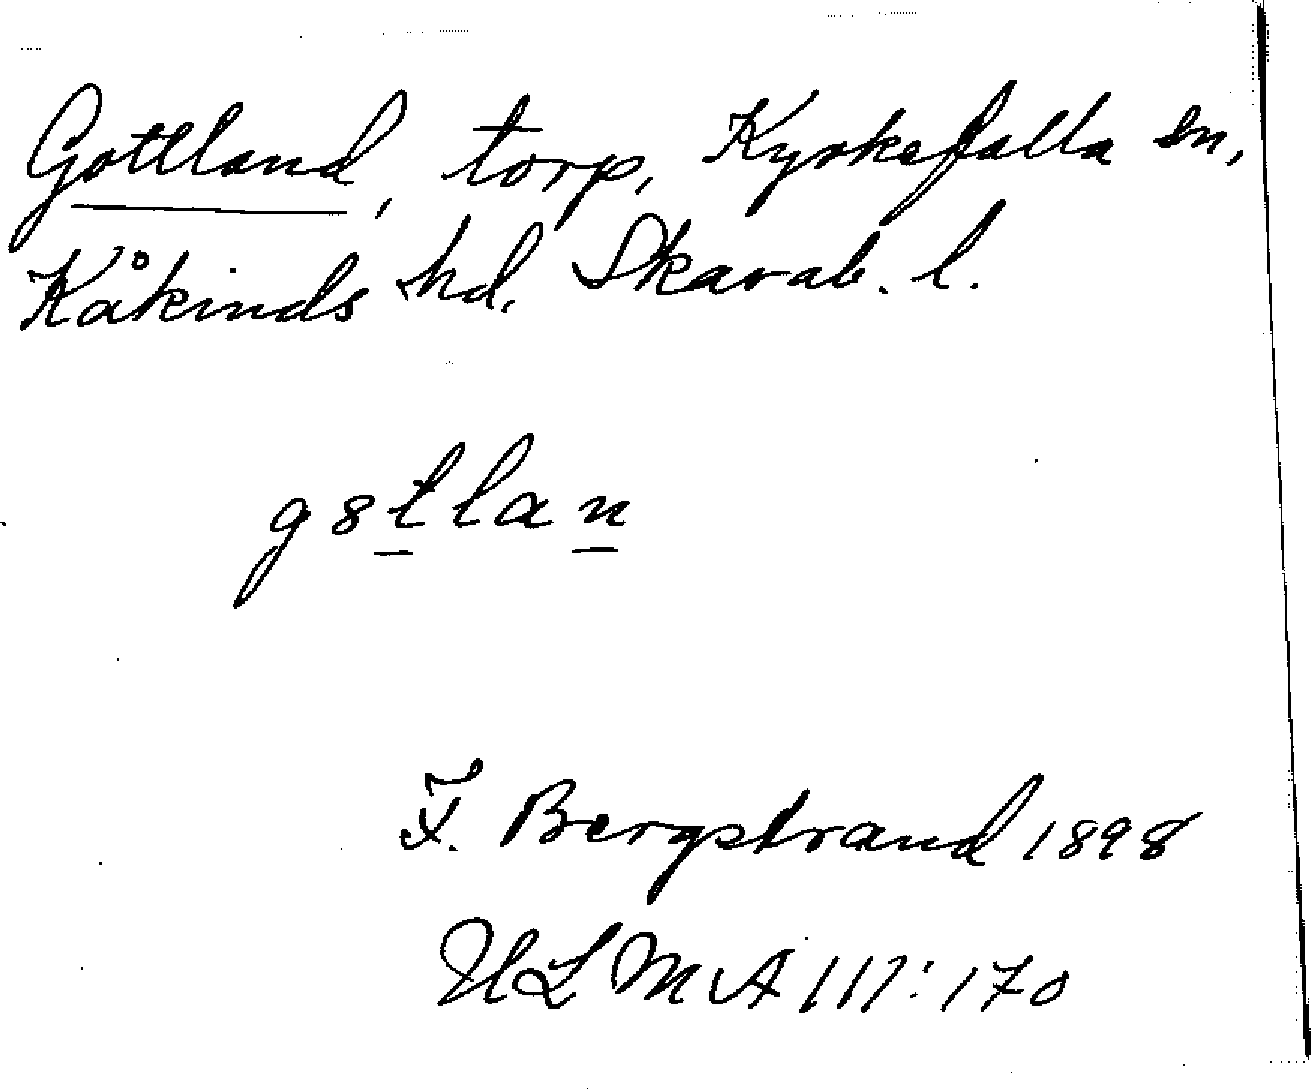 Gottland, torp, Kyrkefalla sn,
Kåkinds hd, Skarab. l.
g8tlan
F. Bergstrand 1898
ULMA 111:170